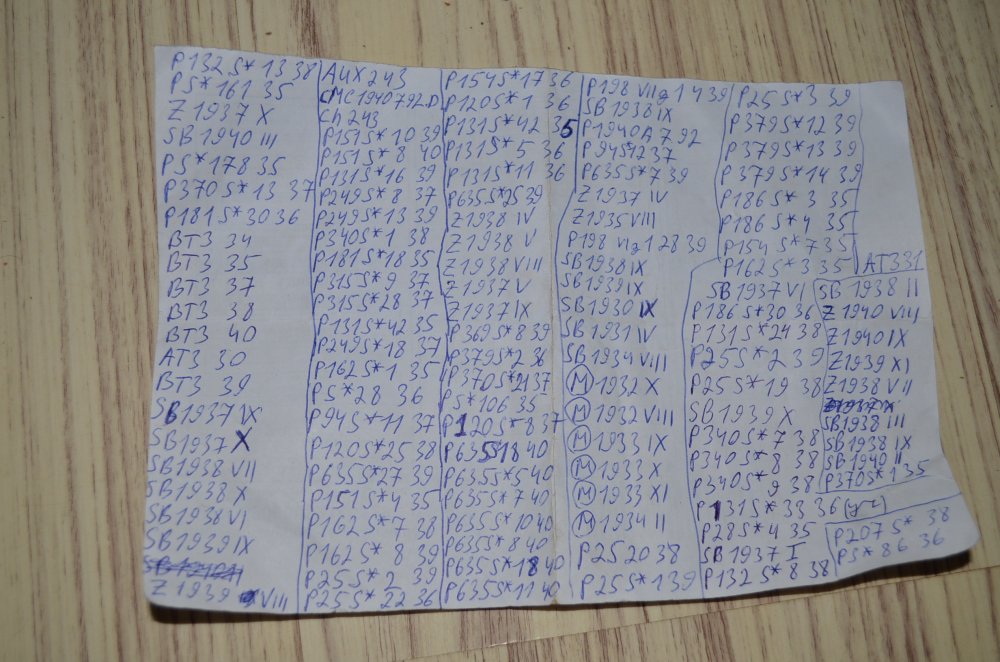 P132S*13 38
PS*161 35
Z 1937 X
SB 1940 III
PS*178 35
P370S*13 37
P181S*30 36
BT3 34
BT3 35
BT3 37
BT3 38
BT3 40
AT3 30
BT3 39
SB 1937 IX
SB 1937 X
SB 1938 VII
SB 1938 X
SB 1938 VI
SB 1939 IX
Z 1939 VIII
AUX 243
CMC 1940 792 D
Ch 243
P151S*10 39
P151S*8 40
P131S*16 39
P249S*8 37
P249S*13 39
P340S*1 38
P181S*18 35
P315S*9 37
P315S*28 37
P131S*42 35
P249S*18 37
P162S*1 35
PS*28 36
P94S*11 37
P120S*25 38
P635S*27 39
P151S*4 35
P162S*7 38
P162S*8 39
P25S*2 39
P25S*22 36
P154S*17 36
P120S*1 36
P131S*42 35
P131S*5 36
P131S*11 36
P635S*25 39
Z 1938 IV
Z 1938 V
Z 1938 VIII
Z 1937 V
Z 1937 IX
P369S*8 39
P379S*2 36
P370S*21 37
PS*106 35
P120S*8 37
P635S*18 40
P635S*5 40
P635S*7 40
P635S*10 40
P635S*8 40
P635S*18 40
P635S*11 40
P198 VIIg 1 4 39
SB 1938 IX
P1940A 7 92
P94S12 37
P635S*7 39
Z 1937 IV
Z 1935 VIII
P198 VIg 1 28 39
SB 1938 IX
SB 1939 IX
SB 1930 IX
SB 1931 IV
SB 1934 VIII
M 1932 X
M 1932 VIII
M 1933 IX
M 1933 X
M 1933 XI
M 1934 II
P25 20 38
P25S*1 39
P25S*3 39
P379S*12 39
P379S*13 39
P379S*14 39
P186S*3 35
P186S*4 35
P154S*7 35
P162S*3 35
AT331
SB 1937 VI
P186S*30 36
P131S*24 38
P25S*2 39
P25S*19 38
SB 1939 X
P340S*7 38
P340S*8 38
P340S*9 38
P131S*33 36 (yr)
P28S*4 35
SB 1937 I
P132S*8 38
SB 1938 II
Z 1940 VIII
Z 1940 IX
Z 1939 XI
Z 1938 VII
SB 1938 III
SB 1938 IX
SB 1940 II
P370S*1 35
P207S* 38
PS*86 36